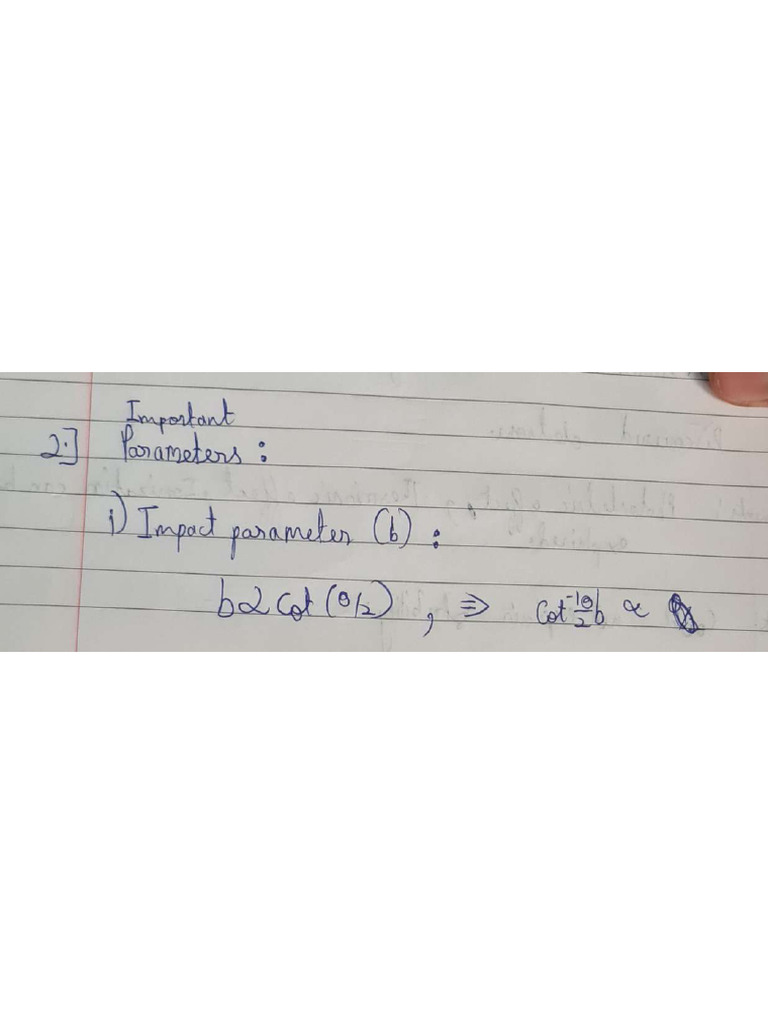 Important
2.] Parameters :
i) Impact parameter (b) :
b α cot (θ/2) , ⇒ cot⁻¹ θ/2 b ∝